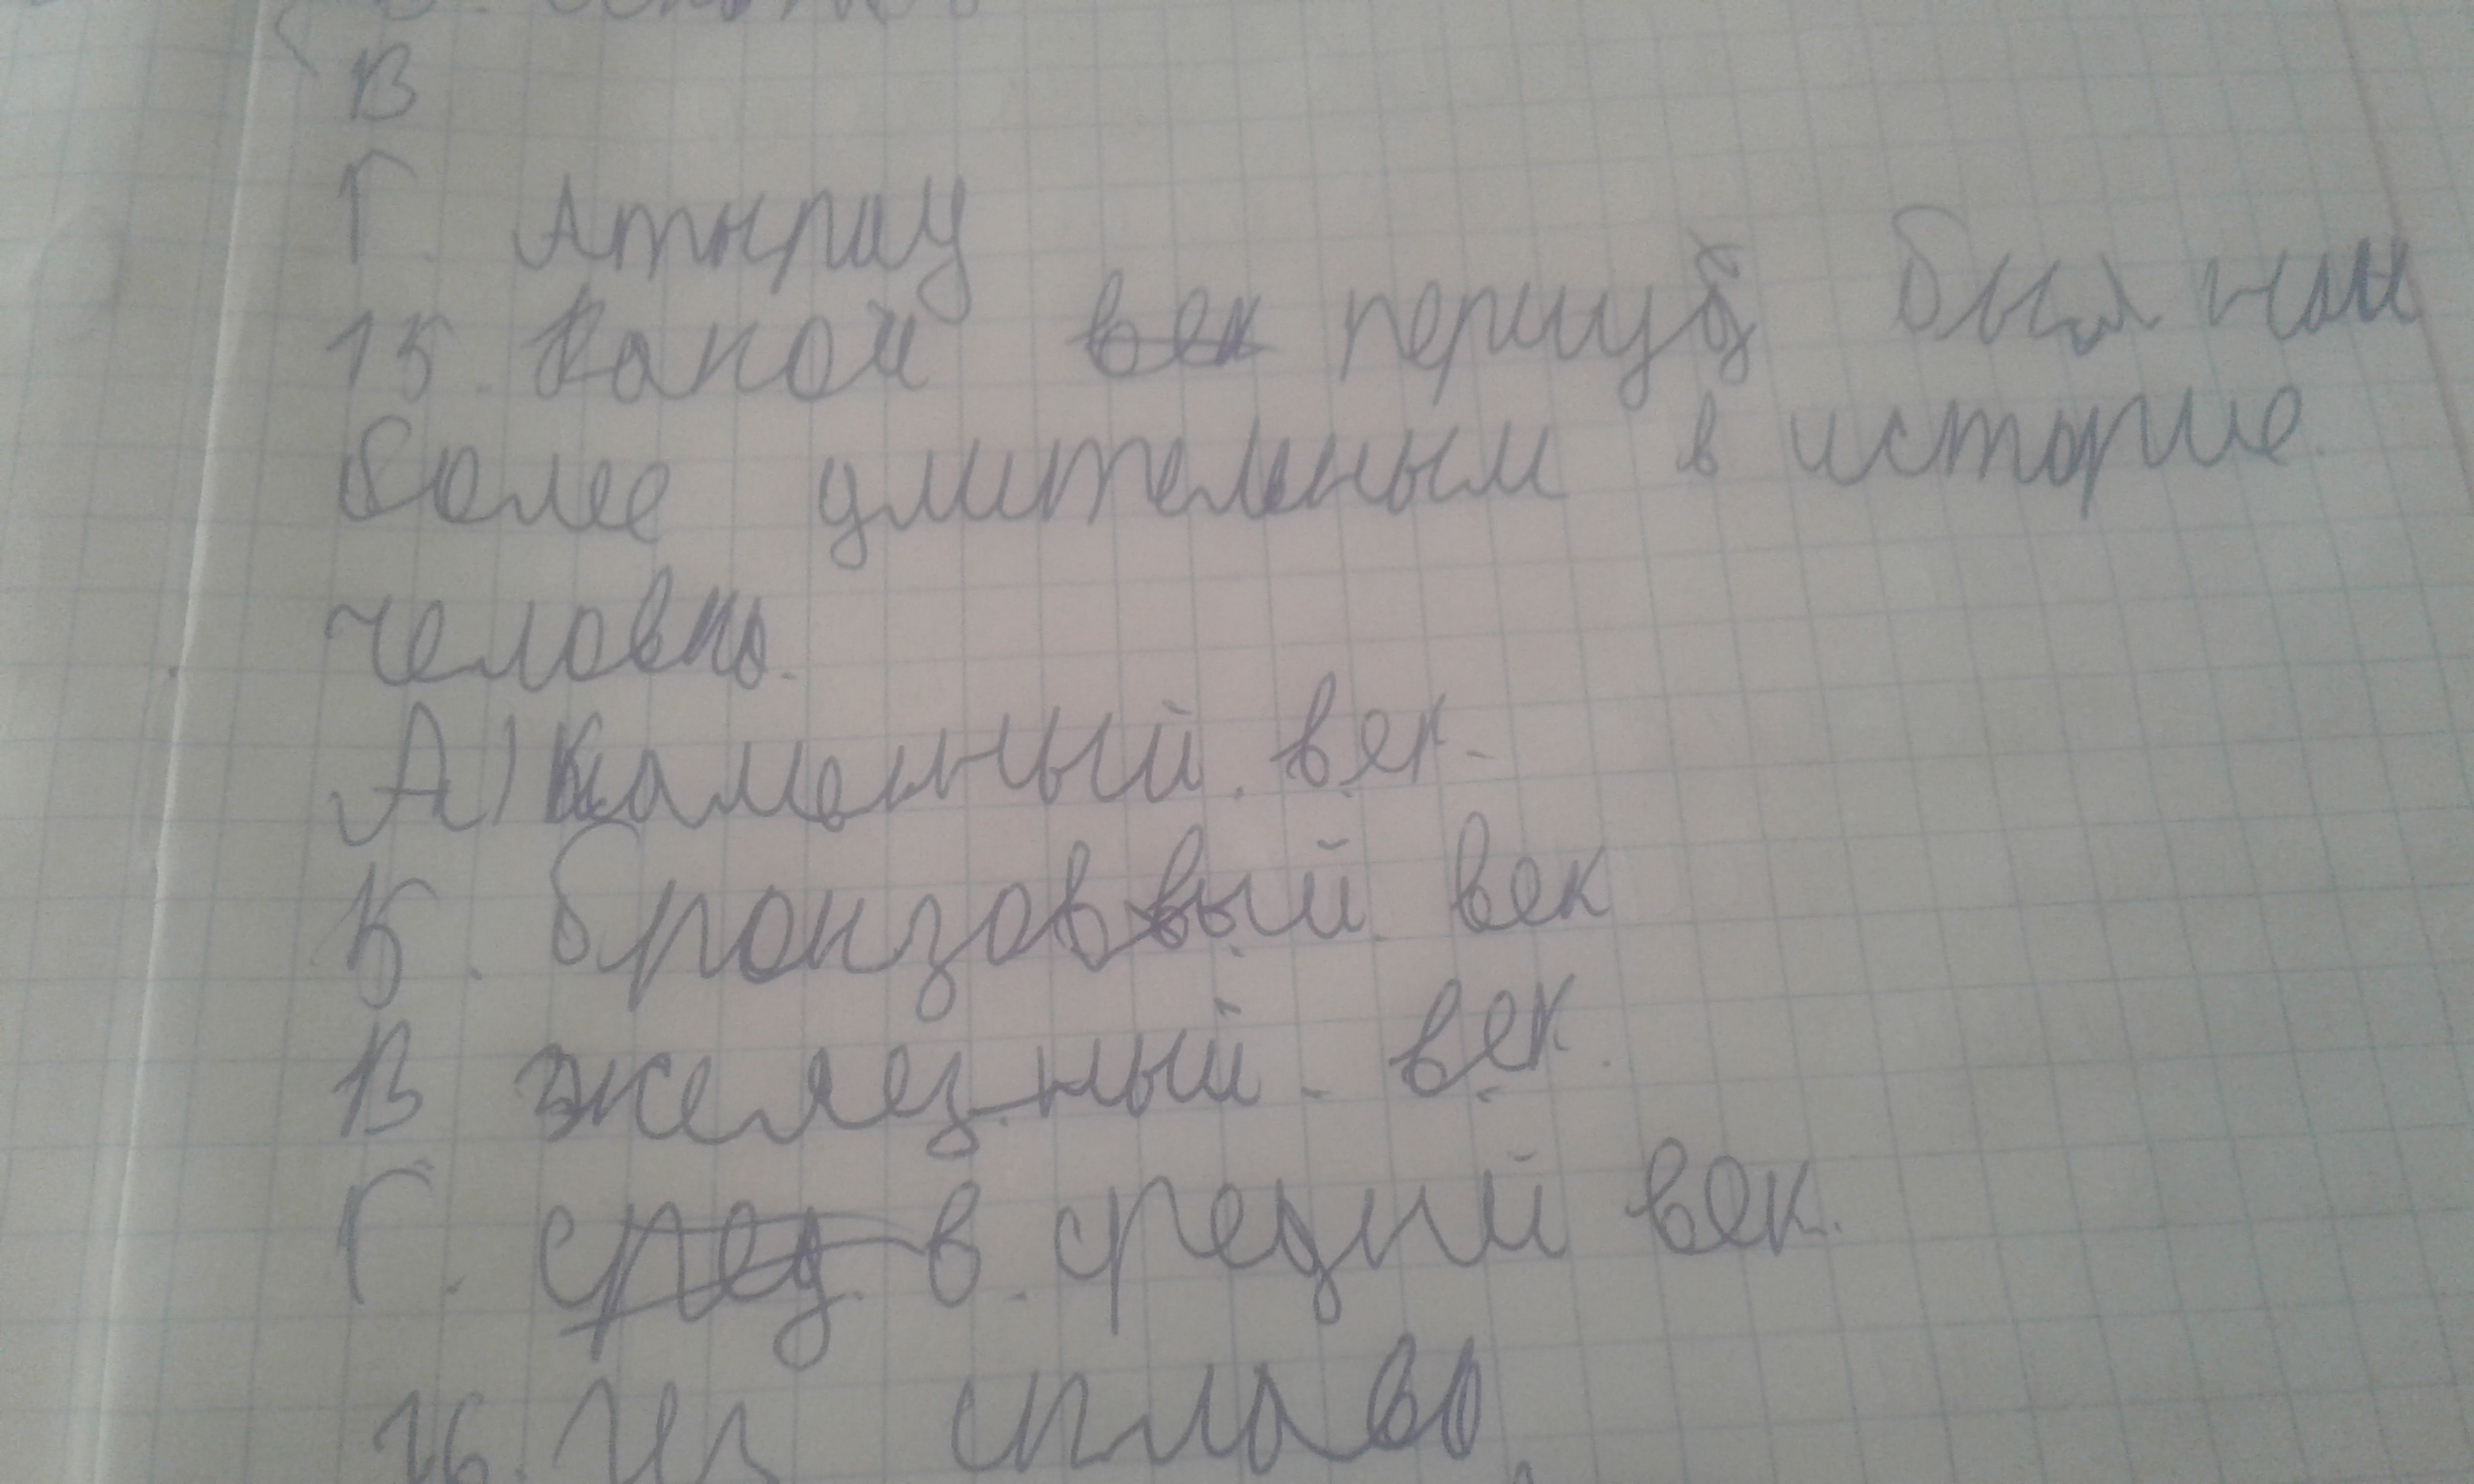 В
Г. Атырау
15. Какой век периуд был наи
более длительным в историе
человка.
А) Каменный. век.
Б. бронзоввый век
В железный. век.
Г. сред. в. средний век.
16. Из сплава